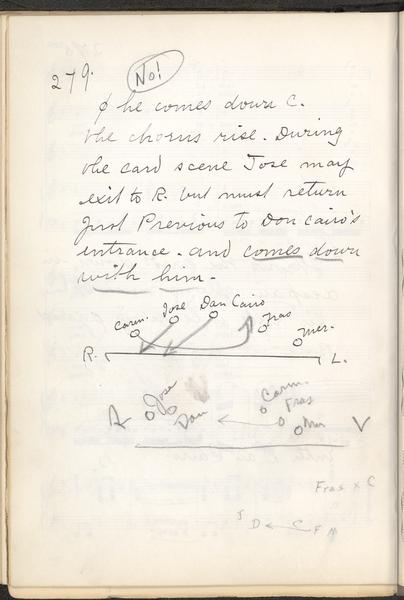 279.
No!
ϕ he comes down C.
the chorus rise. During
the card scene Jose may
exit to R. but must return
just Previous to Don Cairo's
entrance. and comes down
with him.
Carm. Jose Dan Cairo Fras Mer.
R. L.
Jose Carm.
Dan Fras
R Mer
Fras x C
J D C F M